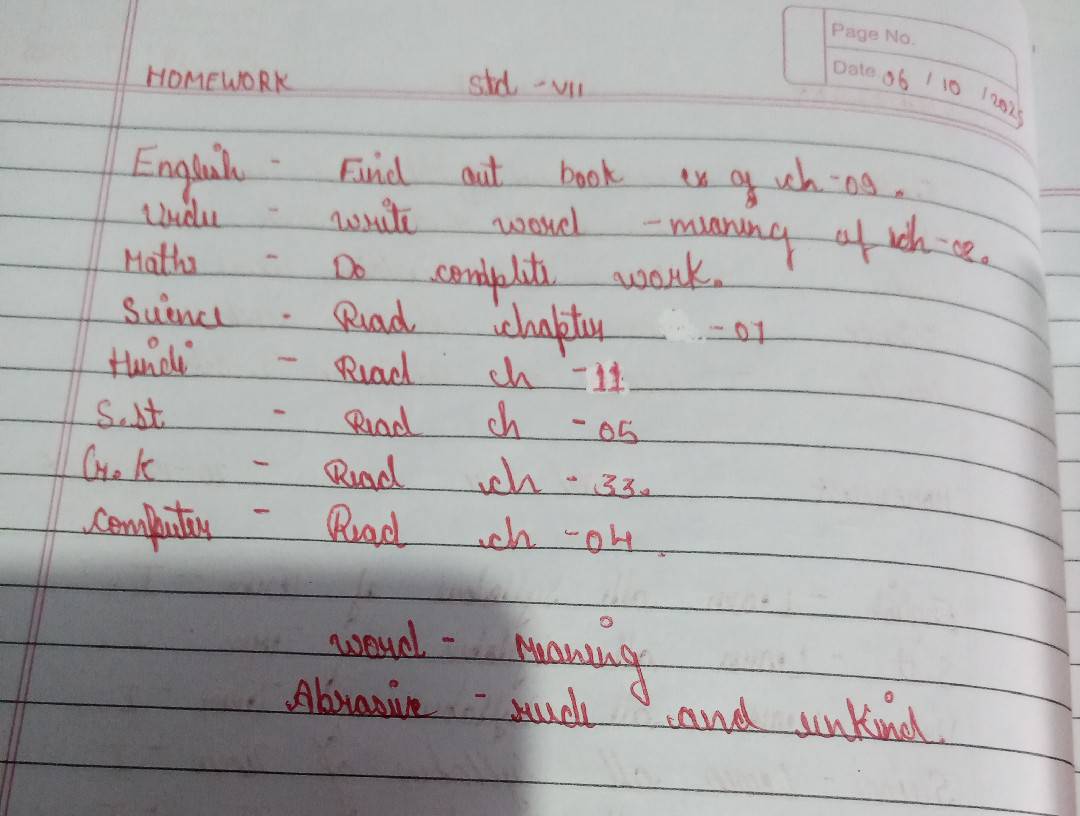 Page No.
Date 06 / 10 / 2025
HOMEWORK Std - VII
English - Find out book ex of ch - 09.
Urdu - write word - meaning of ch - 02.
Maths - Do complete work.
Science - Read chapter - 07
Hindi - Read ch - 11
S.st - Read ch - 05
G.K - Read ch - 33.
Computer - Read ch - 04.
word - Meaning
Abrasive - rude and unkind.